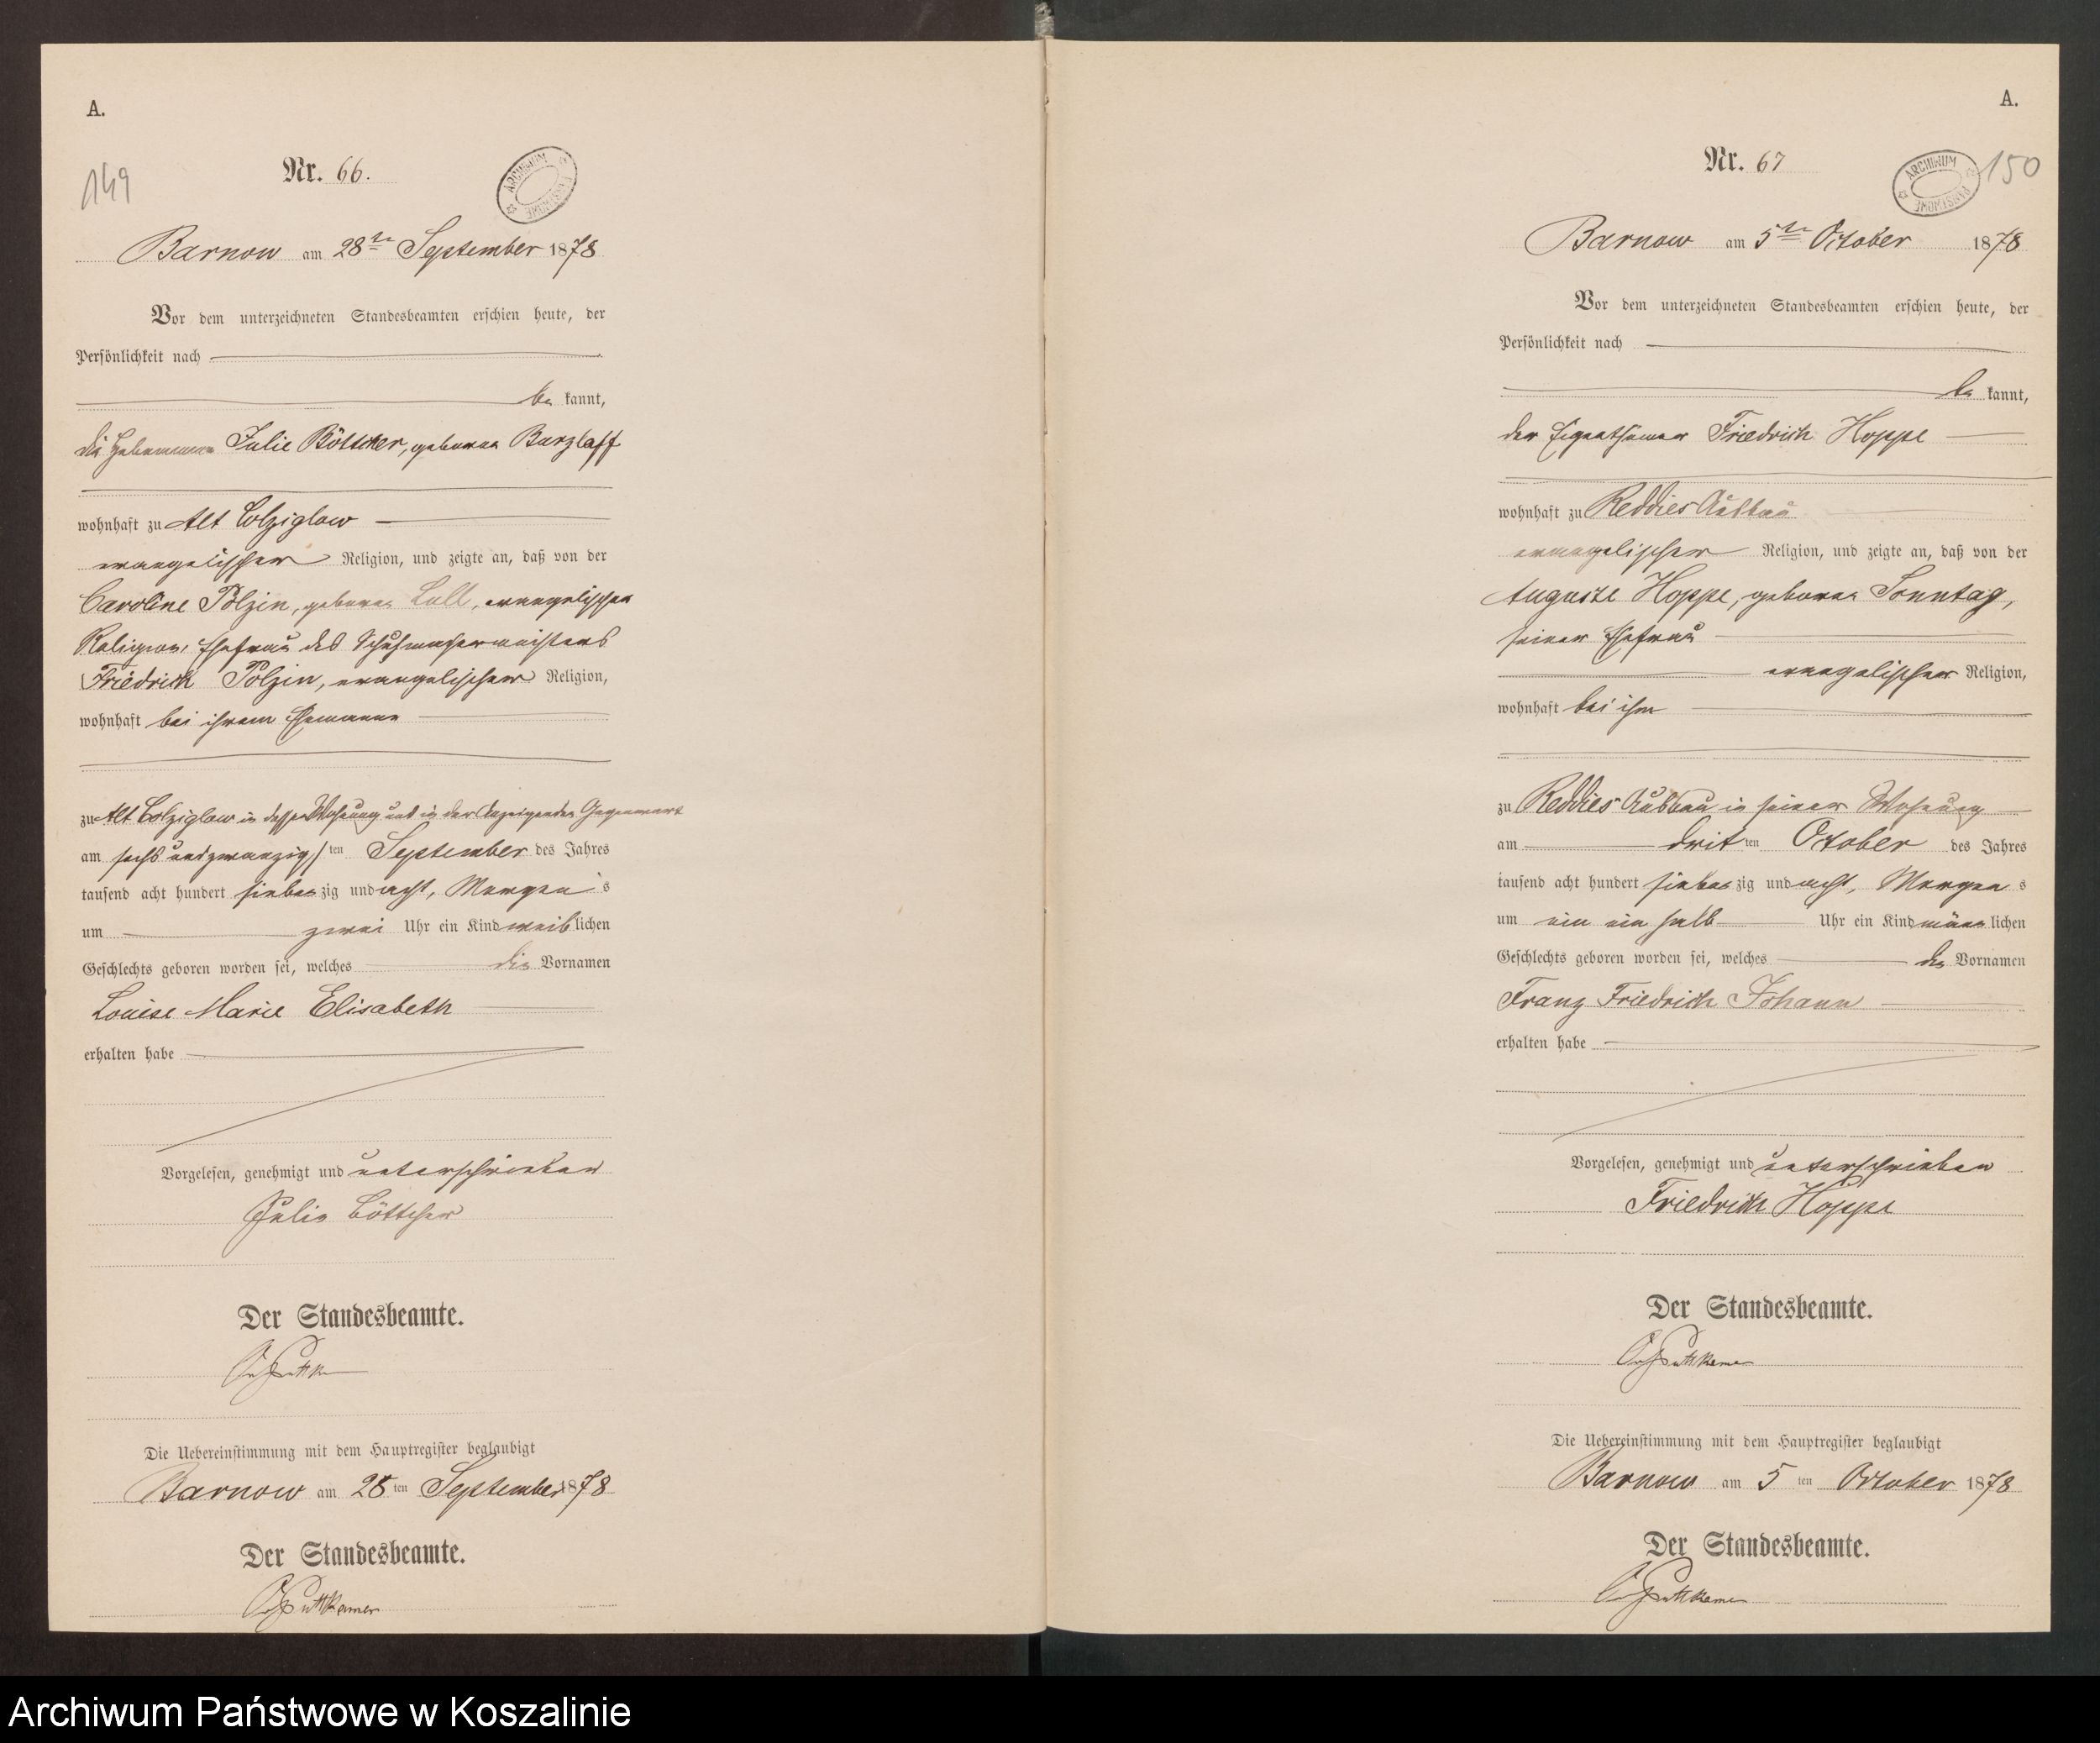 A.
149
Nr. 66.
ARCHIWUM PAŃSTWOWE
Barnow am 28ten September 1878
Vor dem unterzeichneten Standesbeamten erschien heute, der
Persönlichkeit nach
be kannt,
die Hebamme Julie Böttcher, geborne Burzlaff
wohnhaft zu Alt Colziglow
evangelischer Religion, und zeigte an, daß von der
Caroline Polzin, geborne evangelischer
Religion, Ehefrau des Schuhmachermeisters
Friedrich Polzin, evangelischer Religion,
wohnhaft bei ihrem Ehemanne
zu Alt Colziglow in dessen Wohnung und in der Anzeigenden Gegenwart
am sechs und zwanzigsten September des Jahres
tausend acht hundert sieben zig und acht, Morgens
um zwei Uhr ein Kind weiblichen
Geschlechts geboren worden sei, welches die Vornamen
Louise Marie Elisabeth
erhalten habe
Vorgelesen, genehmigt und unterschrieben
Julie Böttcher
Der Standesbeamte.
Die Uebereinstimmung mit dem Hauptregister beglaubigt
Barnow am 28ten September 1878
Der Standesbeamte.
Puttkamer
A.
Nr. 67
ARCHIWUM PAŃSTWOWE
150
Barnow am 5ten October 1878
Vor dem unterzeichneten Standesbeamten erschien heute, der
Persönlichkeit nach
be kannt,
der Eigenthümer Friedrich Hoppe
wohnhaft zu Reddies Ausbau
evangelischer Religion, und zeigte an, daß von der
Auguste Hoppe, geborne Sonntag,
seiner Ehefrau
evangelischer Religion,
wohnhaft bei ihm
zu Reddies Ausbau in seiner Wohnung
am dritten October des Jahres
tausend acht hundert sieben zig und acht, Morgens
um ein ein halb Uhr ein Kind männlichen
Geschlechts geboren worden sei, welches die Vornamen
Franz Friedrich Johann
erhalten habe
Vorgelesen, genehmigt und unterschrieben
Friedrich Hoppe
Der Standesbeamte.
Puttkamer
Die Uebereinstimmung mit dem Hauptregister beglaubigt
Barnow am 5ten October 1878
Der Standesbeamte.
Puttkamer
Archiwum Państwowe w Koszalinie